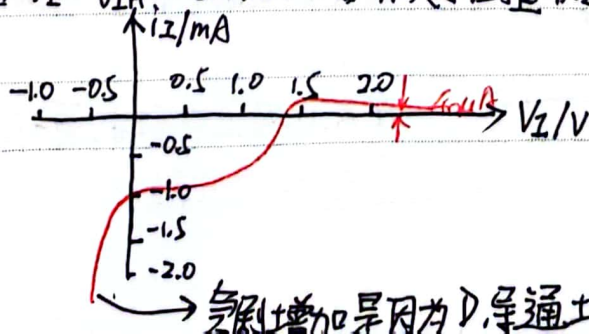 iI/mA
-1.0 -0.5 0.5 1.0 1.5 2.0
VI/V
-0.5
-1.0
-1.5
-2.0
急剧增加是因为D,导通